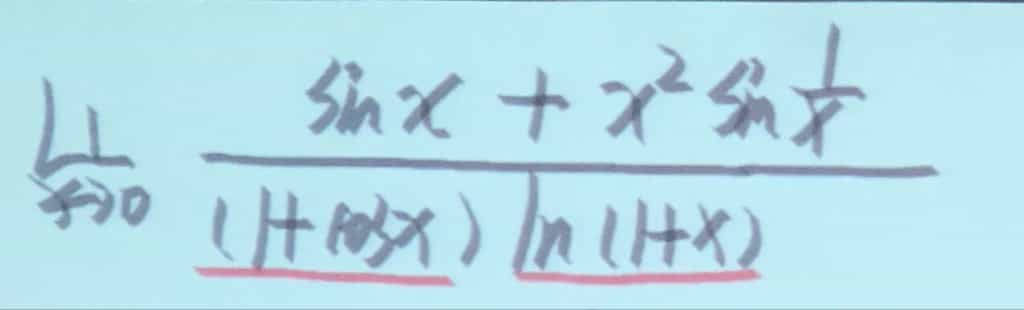 Lt x→0 (sin x + x² sin 1/x) / ((1+cos x) ln(1+x))